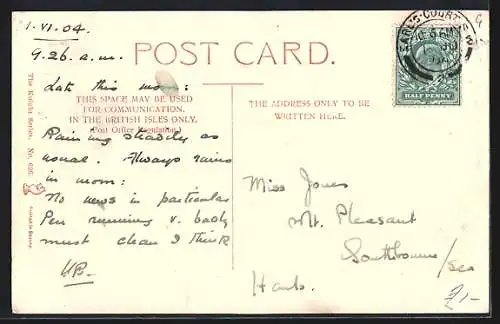 1.VI.04.
9.26. a.m.
POST CARD.
Late this morn:
THIS SPACE MAY BE USED
FOR COMMUNICATION.
IN THE BRITISH ISLES ONLY.
(Post Office Regulation.)
THE ADDRESS ONLY TO BE
WRITTEN HERE.
Raining steadily as
usual. Always rains
in morn:
No news in particular
Pen running v. badly
must clean I think
HB.
Miss Jones
Mt. Pleasant
Southbourne/Sea
Hants.
£1-
The Knight Series. No. 626.
EARL'S-COURT S.W.
HALF PENNY